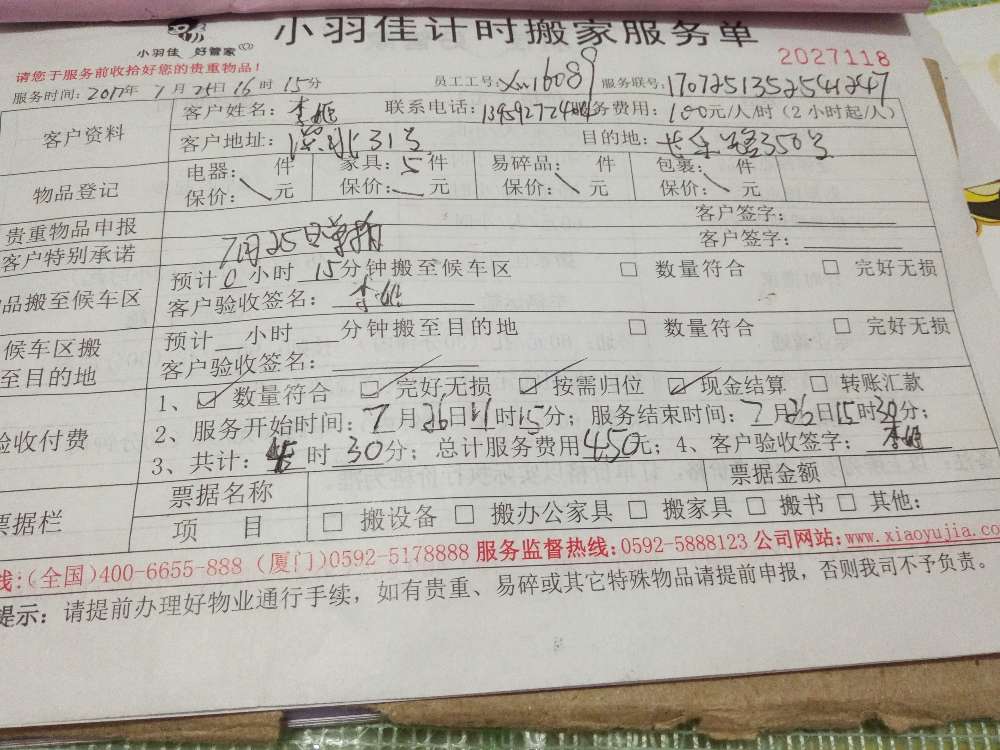 小羽佳计时搬家服务单
小羽佳 好管家
2027118
请您于服务前收拾好您的贵重物品！
服务时间：2017年7月25日16时15分 员工工号：xm16089 服务联号：170725135254 1247
客户资料 客户姓名： 联系电话： 务费用：100元/人/时（2小时起/人）
客户地址： 31号 目的地： 350号
物品登记 电器： 件 家具：5件 易碎品： 件 包裹： 件
保价： 元 保价： 元 保价： 元 保价： 元
贵重物品申报 客户签字：
客户特别承诺 7月25日 客户签字：
品搬至候车区 预计0小时15分钟搬至候车区 □ 数量符合 □ 完好无损
客户验收签名：
候车区搬至目的地 预计 小时 分钟搬至目的地 □ 数量符合 □ 完好无损
客户验收签名：
验收付费 1、☑ 数量符合 ☑ 完好无损 ☑ 按需归位 ☑ 现金结算 □ 转账汇款
2、服务开始时间：7月26日11时15分；服务结束时间：7月26日15时30分；
3、共计： 时30分；总计服务费用450元；4、客户验收签字：
票据栏 票据名称 票据金额
项 目 □ 搬设备 □ 搬办公家具 □ 搬家具 □ 搬书 □ 其他：
线：(全国)400-6655-888 (厦门)0592-5178888 服务监督热线：0592-5888123 公司网站：www.xiaoyujia.com
提示：请提前办理好物业通行手续，如有贵重、易碎或其它特殊物品请提前申报，否则我司不予负责。